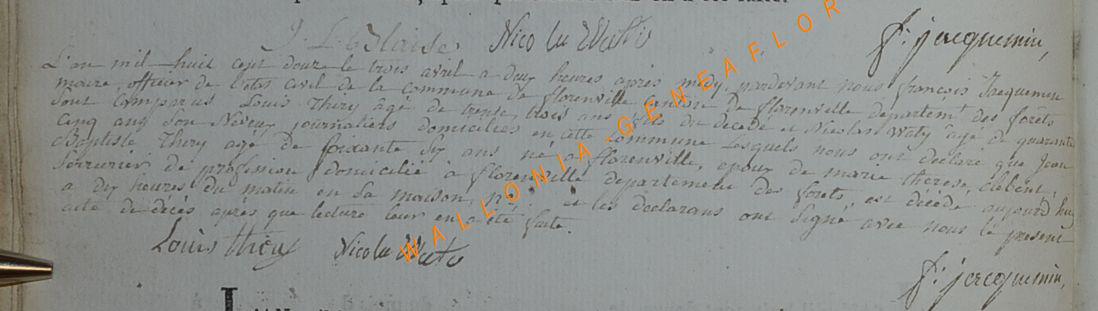 J. L. Blaise Nicolas Watié fs. jacquemin,
L'an mil huit cent douze le trois avril a deux heures après midy pardevant nous françois Jacquemin
maire, officier de l'etat civil de la commune de florenville canton de florenville departemt. des forêts
sont comparus Louis Thiry âgé de trente trois ans fils du decede et Nicolas Waty âgé de quarante
cinq ans son Neveu journaliers domiciliés en cette commune Lesquels nous ont declaré que Jean
Baptiste Thiry agé de soixante six ans né a florenville, epoux de marie therese,
Serrurier de profession domicilié à florenville departement des forets, est décédé aujourd'huy
a dix heures du matin en sa maison, et les declarans ont signé avec nous le present
acte de décès après que lecture leur en a été faite.
Louis thiry Nicolas Watié
fs. jacquemin,
WALLONIA-GENEAFLOR
L